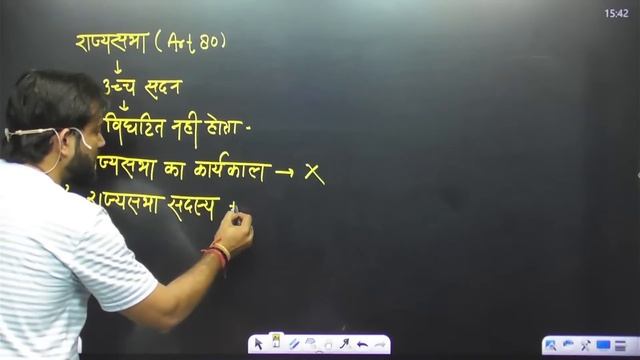 15:42
राज्यसभा (Art 80)
उच्च सदन
विघटित नही होगा -
राज्यसभा का कार्यकाल → X
राज्यसभा सदस्य